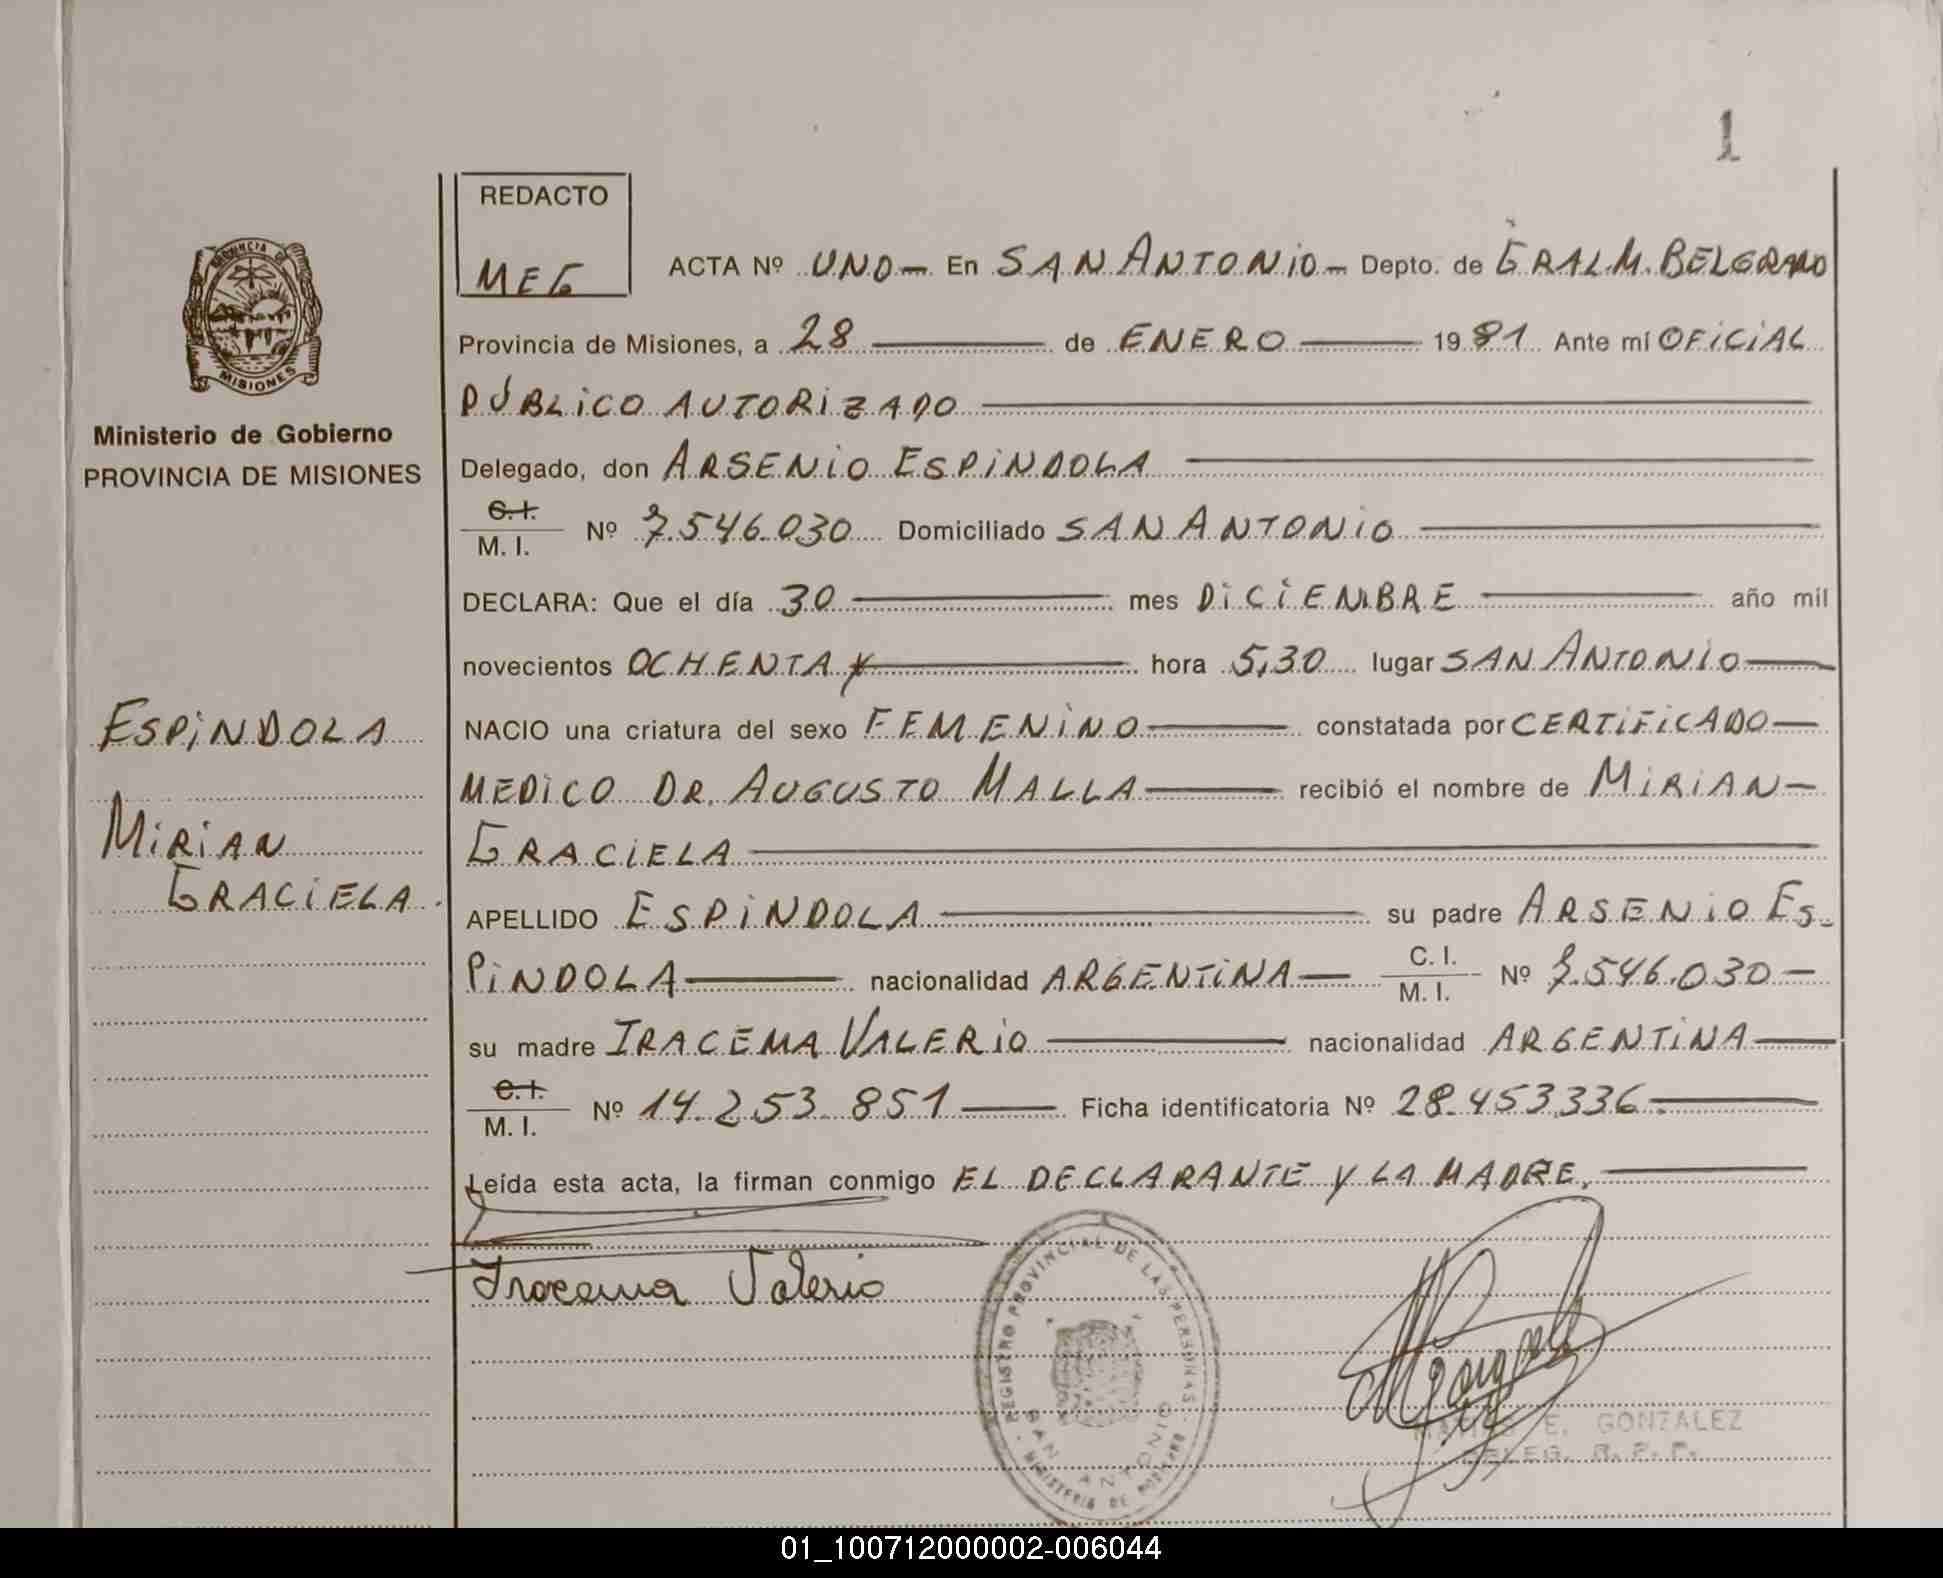 1
REDACTO
MEG
ACTA Nº UNO - En SAN ANTONIO - Depto. de GRAL. M. BELGRANO
Provincia de Misiones, a 28 de ENERO 1981 Ante mí OFICIAL
PÚBLICO AUTORIZADO
Delegado, don ARSENIO ESPINDOLA
C.I.
M. I. Nº 7.546.030 Domiciliado SAN ANTONIO
DECLARA: Que el día 30 mes DICIEMBRE año mil
novecientos OCHENTA y hora 5,30 lugar SAN ANTONIO
NACIO una criatura del sexo FEMENINO constatada por CERTIFICADO
MEDICO DR. AUGUSTO MALLA recibió el nombre de MIRIAN
GRACIELA
APELLIDO ESPINDOLA su padre ARSENIO ES-
PINDOLA nacionalidad ARGENTINA C. I.
M. I. Nº 7.546.030
su madre IRACEMA VALERIO nacionalidad ARGENTINA
C.I.
M. I. Nº 14.253.851 Ficha identificatoria Nº 28.453.336.
Leída esta acta, la firman conmigo EL DECLARANTE Y LA MADRE.
Iracema Valerio
PROVINCIA DE
MISIONES
Ministerio de Gobierno
PROVINCIA DE MISIONES
ESPINDOLA
MIRIAN
GRACIELA.
REGISTRO PROVINCIAL DE LAS PERSONAS
SAN ANTONIO
MINISTERIO DE GOBIERNO
E. GONZALEZ
DELEG. R. P. P.
01_100712000002-006044